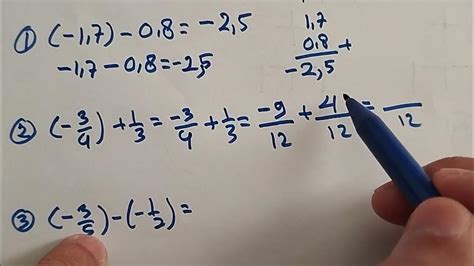 ① (-1,7) - 0,8 = -2,5
-1,7 - 0,8 = -2,5
1,7
0,8 +
-2,5
② (-3/4) + 1/3 = -3/4 + 1/3 = -9/12 + 4/12 = /12
③ (-3/5) - (-1/2) =